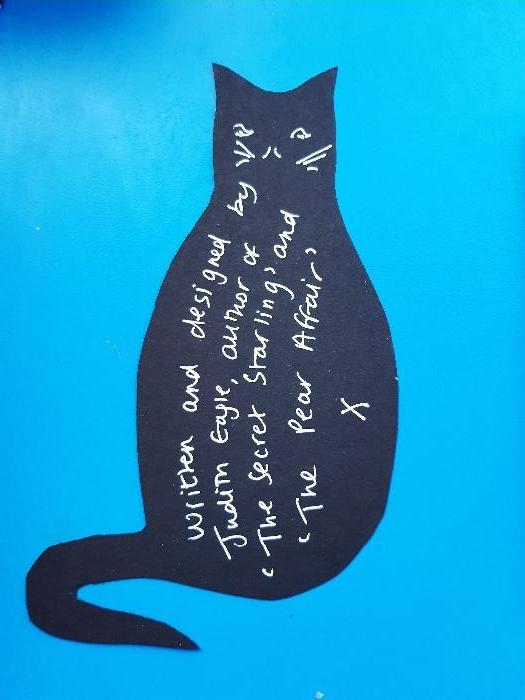 Written and designed by
Judith Eagle, author of
'The Secret Starling' and
'The Pear Affair'
X